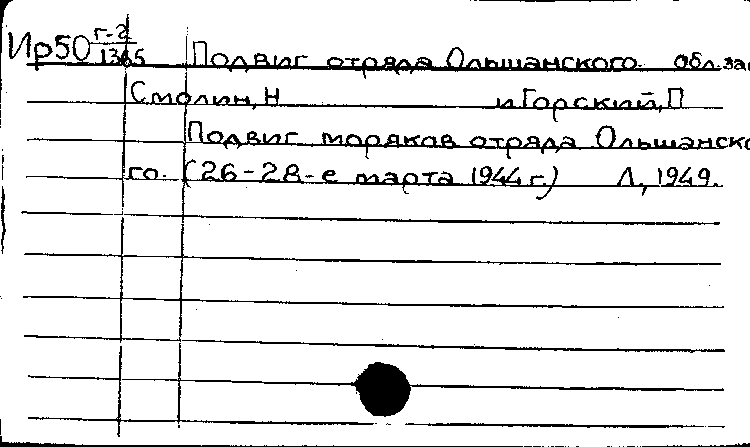 Ир50 г-2/1365 Подвиг отряда Ольшанского. Обл.за
Смолин, Н и Горский, П
Подвиг моряков отряда Ольшанско
го. (26-28-е марта 1944 г.) Л, 1949.